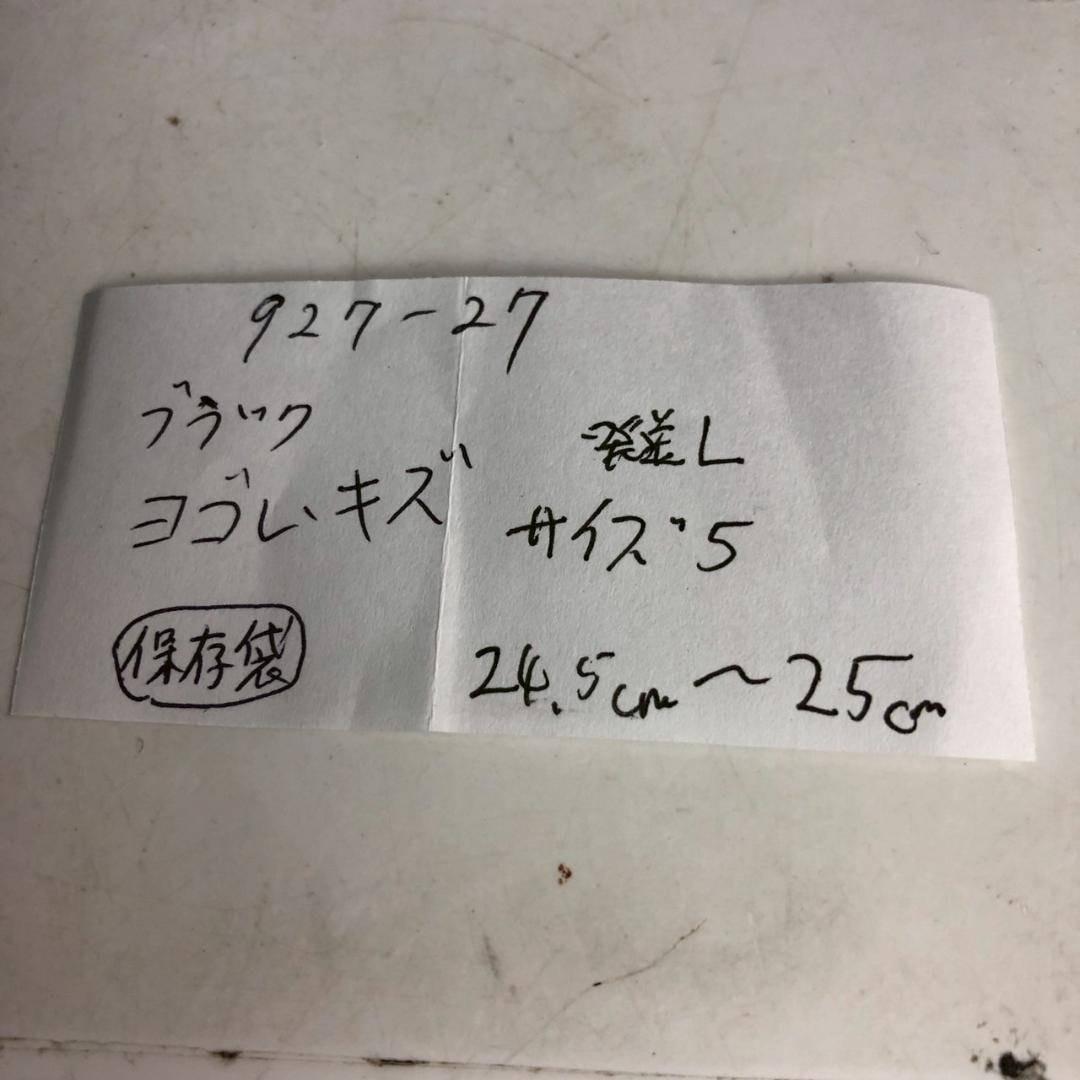 927-27
ブラック
ヨゴレ、キズ
保存袋
L
サイズ5
24.5cm～25cm